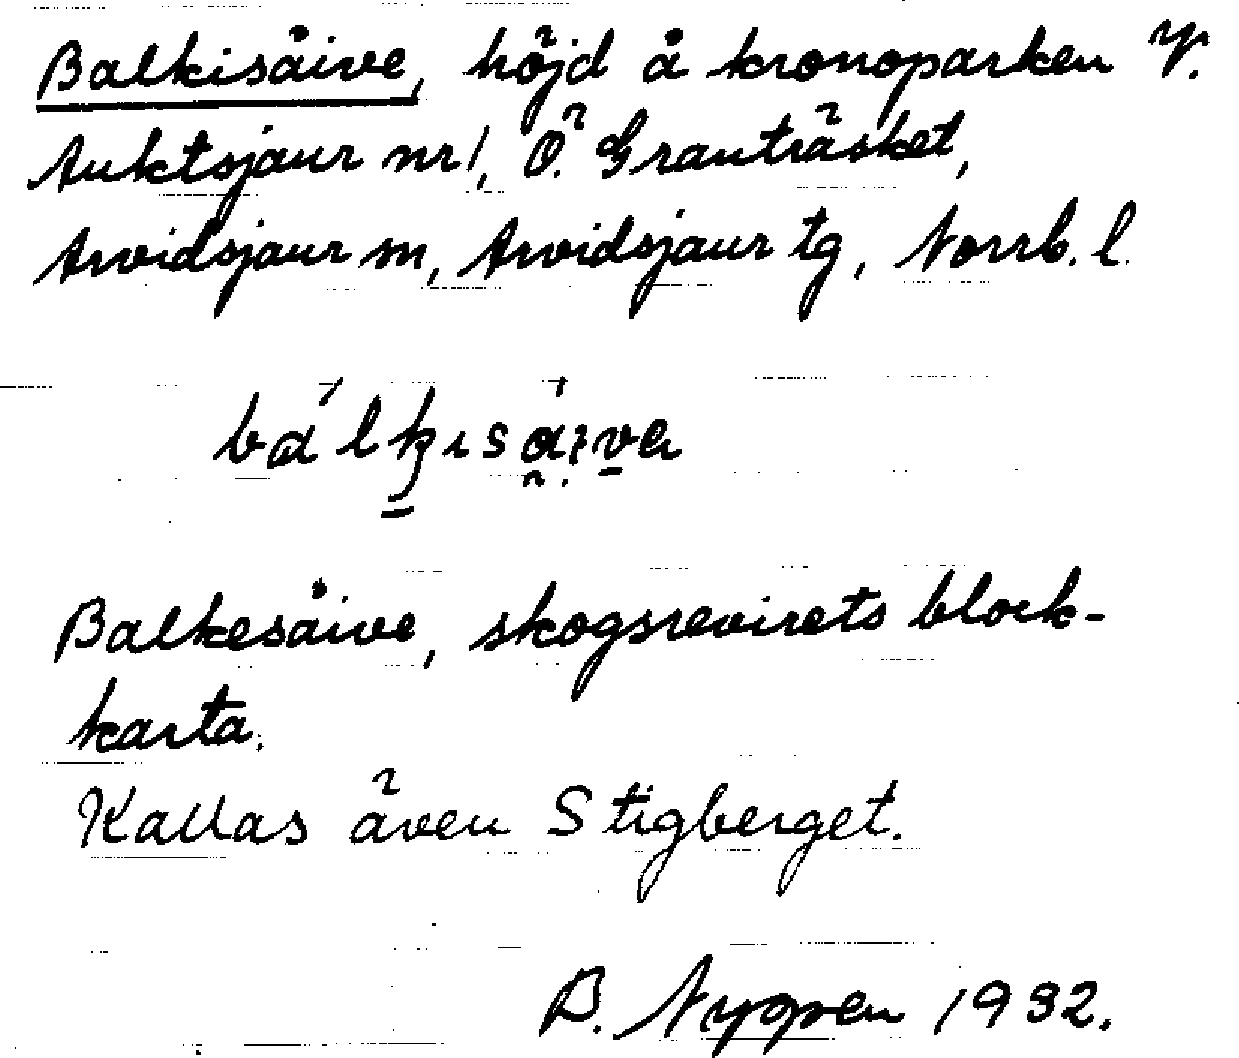 Balkisåive, höjd å kronoparken V.
Auktsjaur nr 1, Ö. Granträsket,
Arvidsjaur sn, Arvidsjaur tg, Norrb. l.
Balkesåive, skogsrevirets block-
karta.
Kallas även Stigberget.
B. Nygren 1932.